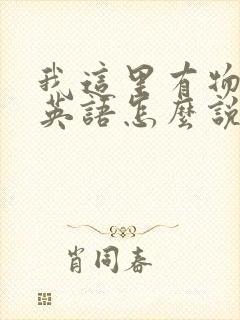 我這里有物
英語怎麼說
肖同春